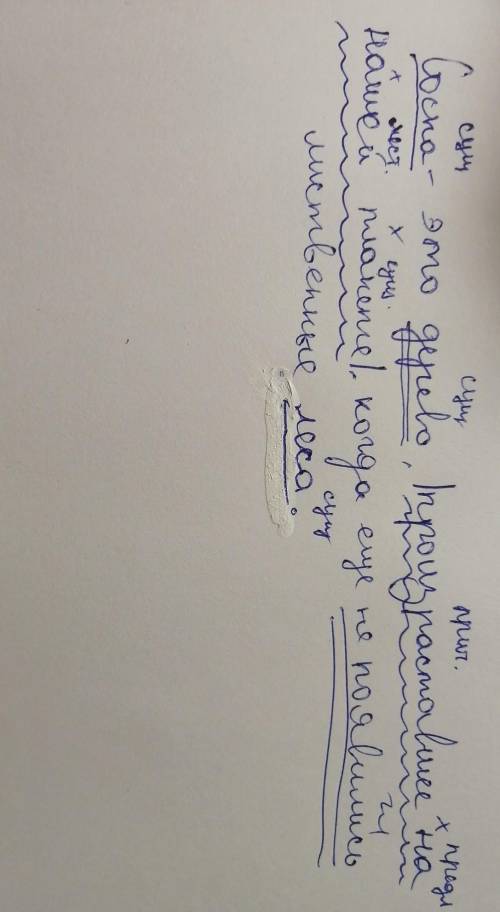 сущ сущ прич. предл
Сосна - это дерево, |произраставшее на
х мест. х сущ. гл
нашей планете|, когда еще не появились
сущ
лиственные леса.